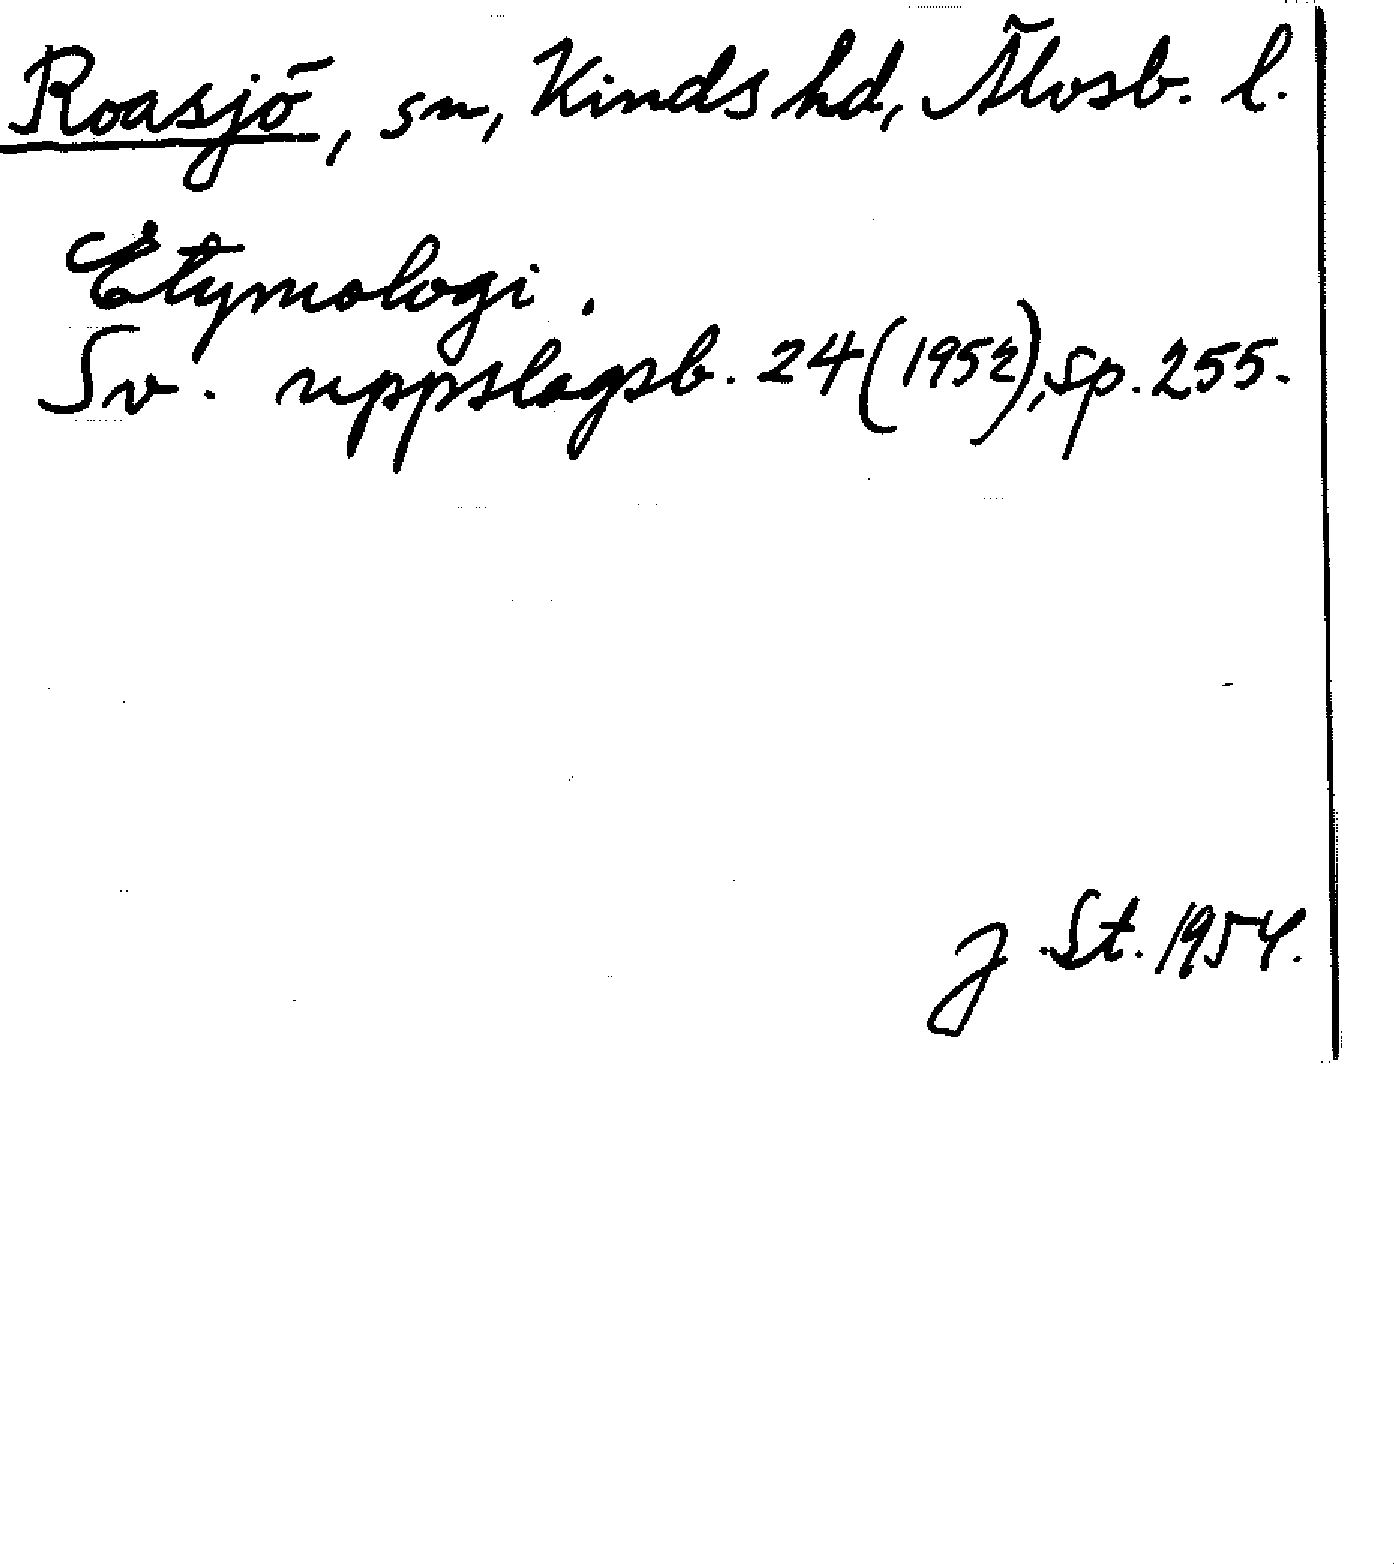 Roasjö, sn, Kinds hd, Älvsb. l.
Etymologi.
Sv. uppslagsb. 24 (1952), sp. 255.
J St. 1954.